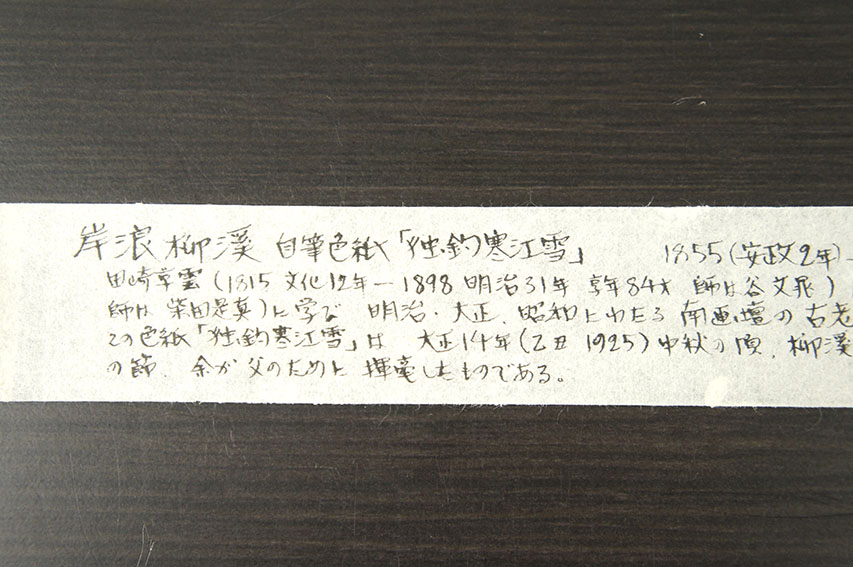 岸浪柳溪 自筆色紙「独釣寒江雪」 1855(安政2年)–
田崎草雲(1815 文化12年―1898 明治31年 享年84才 師は谷文晁)
師は 柴田是真)に学び 明治・大正、昭和にわたる 南画壇の古老
この色紙「独釣寒江雪」は 大正14年(乙丑 1925)中秋の頃、柳溪
の節、余が父のために 揮毫したものである。